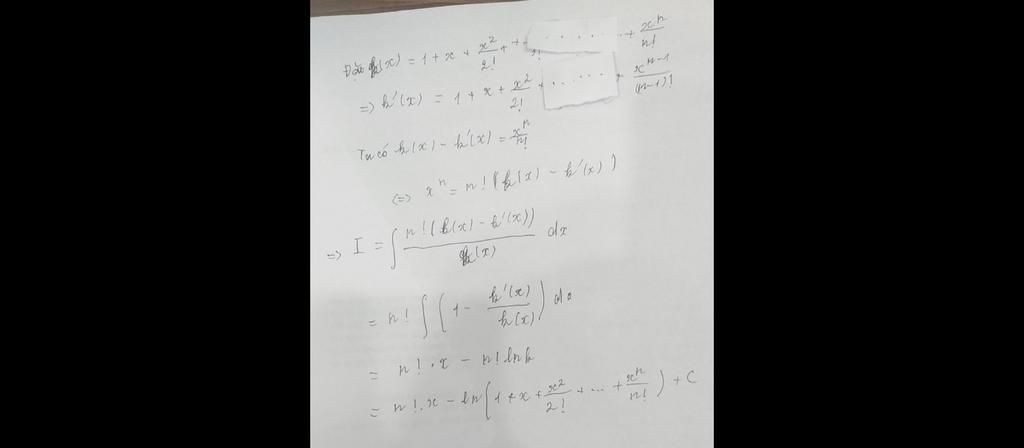 Đặt k(x) = 1 + x + x²/2! + + ...... + xⁿ/n!
=> k'(x) = 1 + x + x²/2! + ...... + xⁿ⁻¹/(n-1)!
Ta có k(x) - k'(x) = xⁿ/n!
(=> xⁿ = n! (k(x) - k'(x))
=> I = ∫ n!(k(x) - k'(x))/k(x) dx
= n! ∫ (1 - k'(x)/k(x)) dx
= n! . x - n! ln k
= n! . x - ln(1 + x + x²/2! + ... + xⁿ/n!) + C